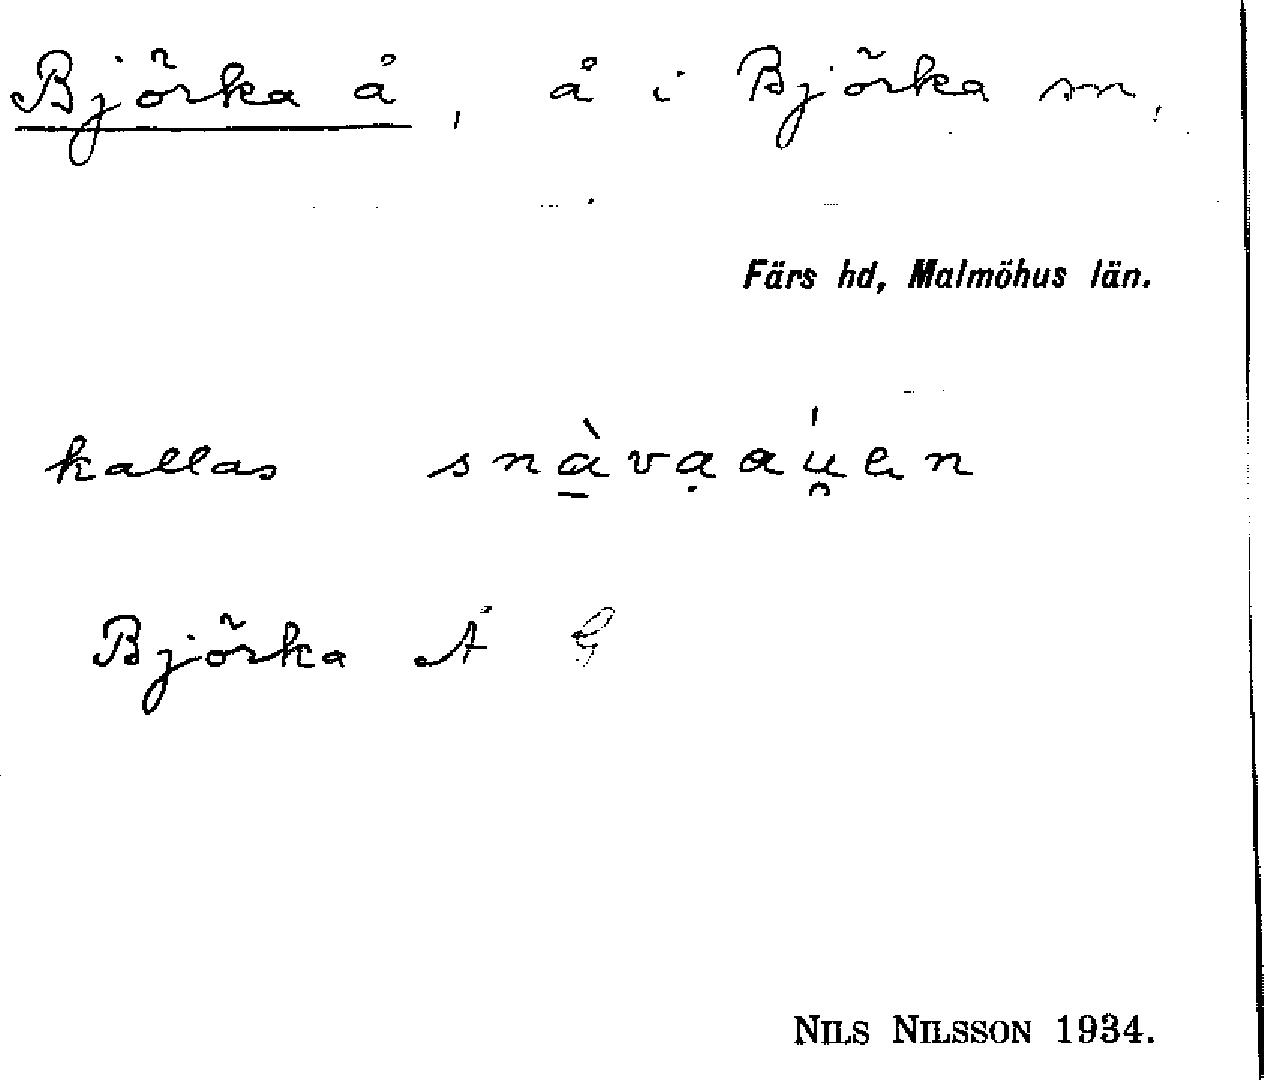 Björka å, å i Björka sn,
Färs hd, Malmöhus län.
kallas snàvạaúen
Björka Å G
NILS NILSSON 1934.